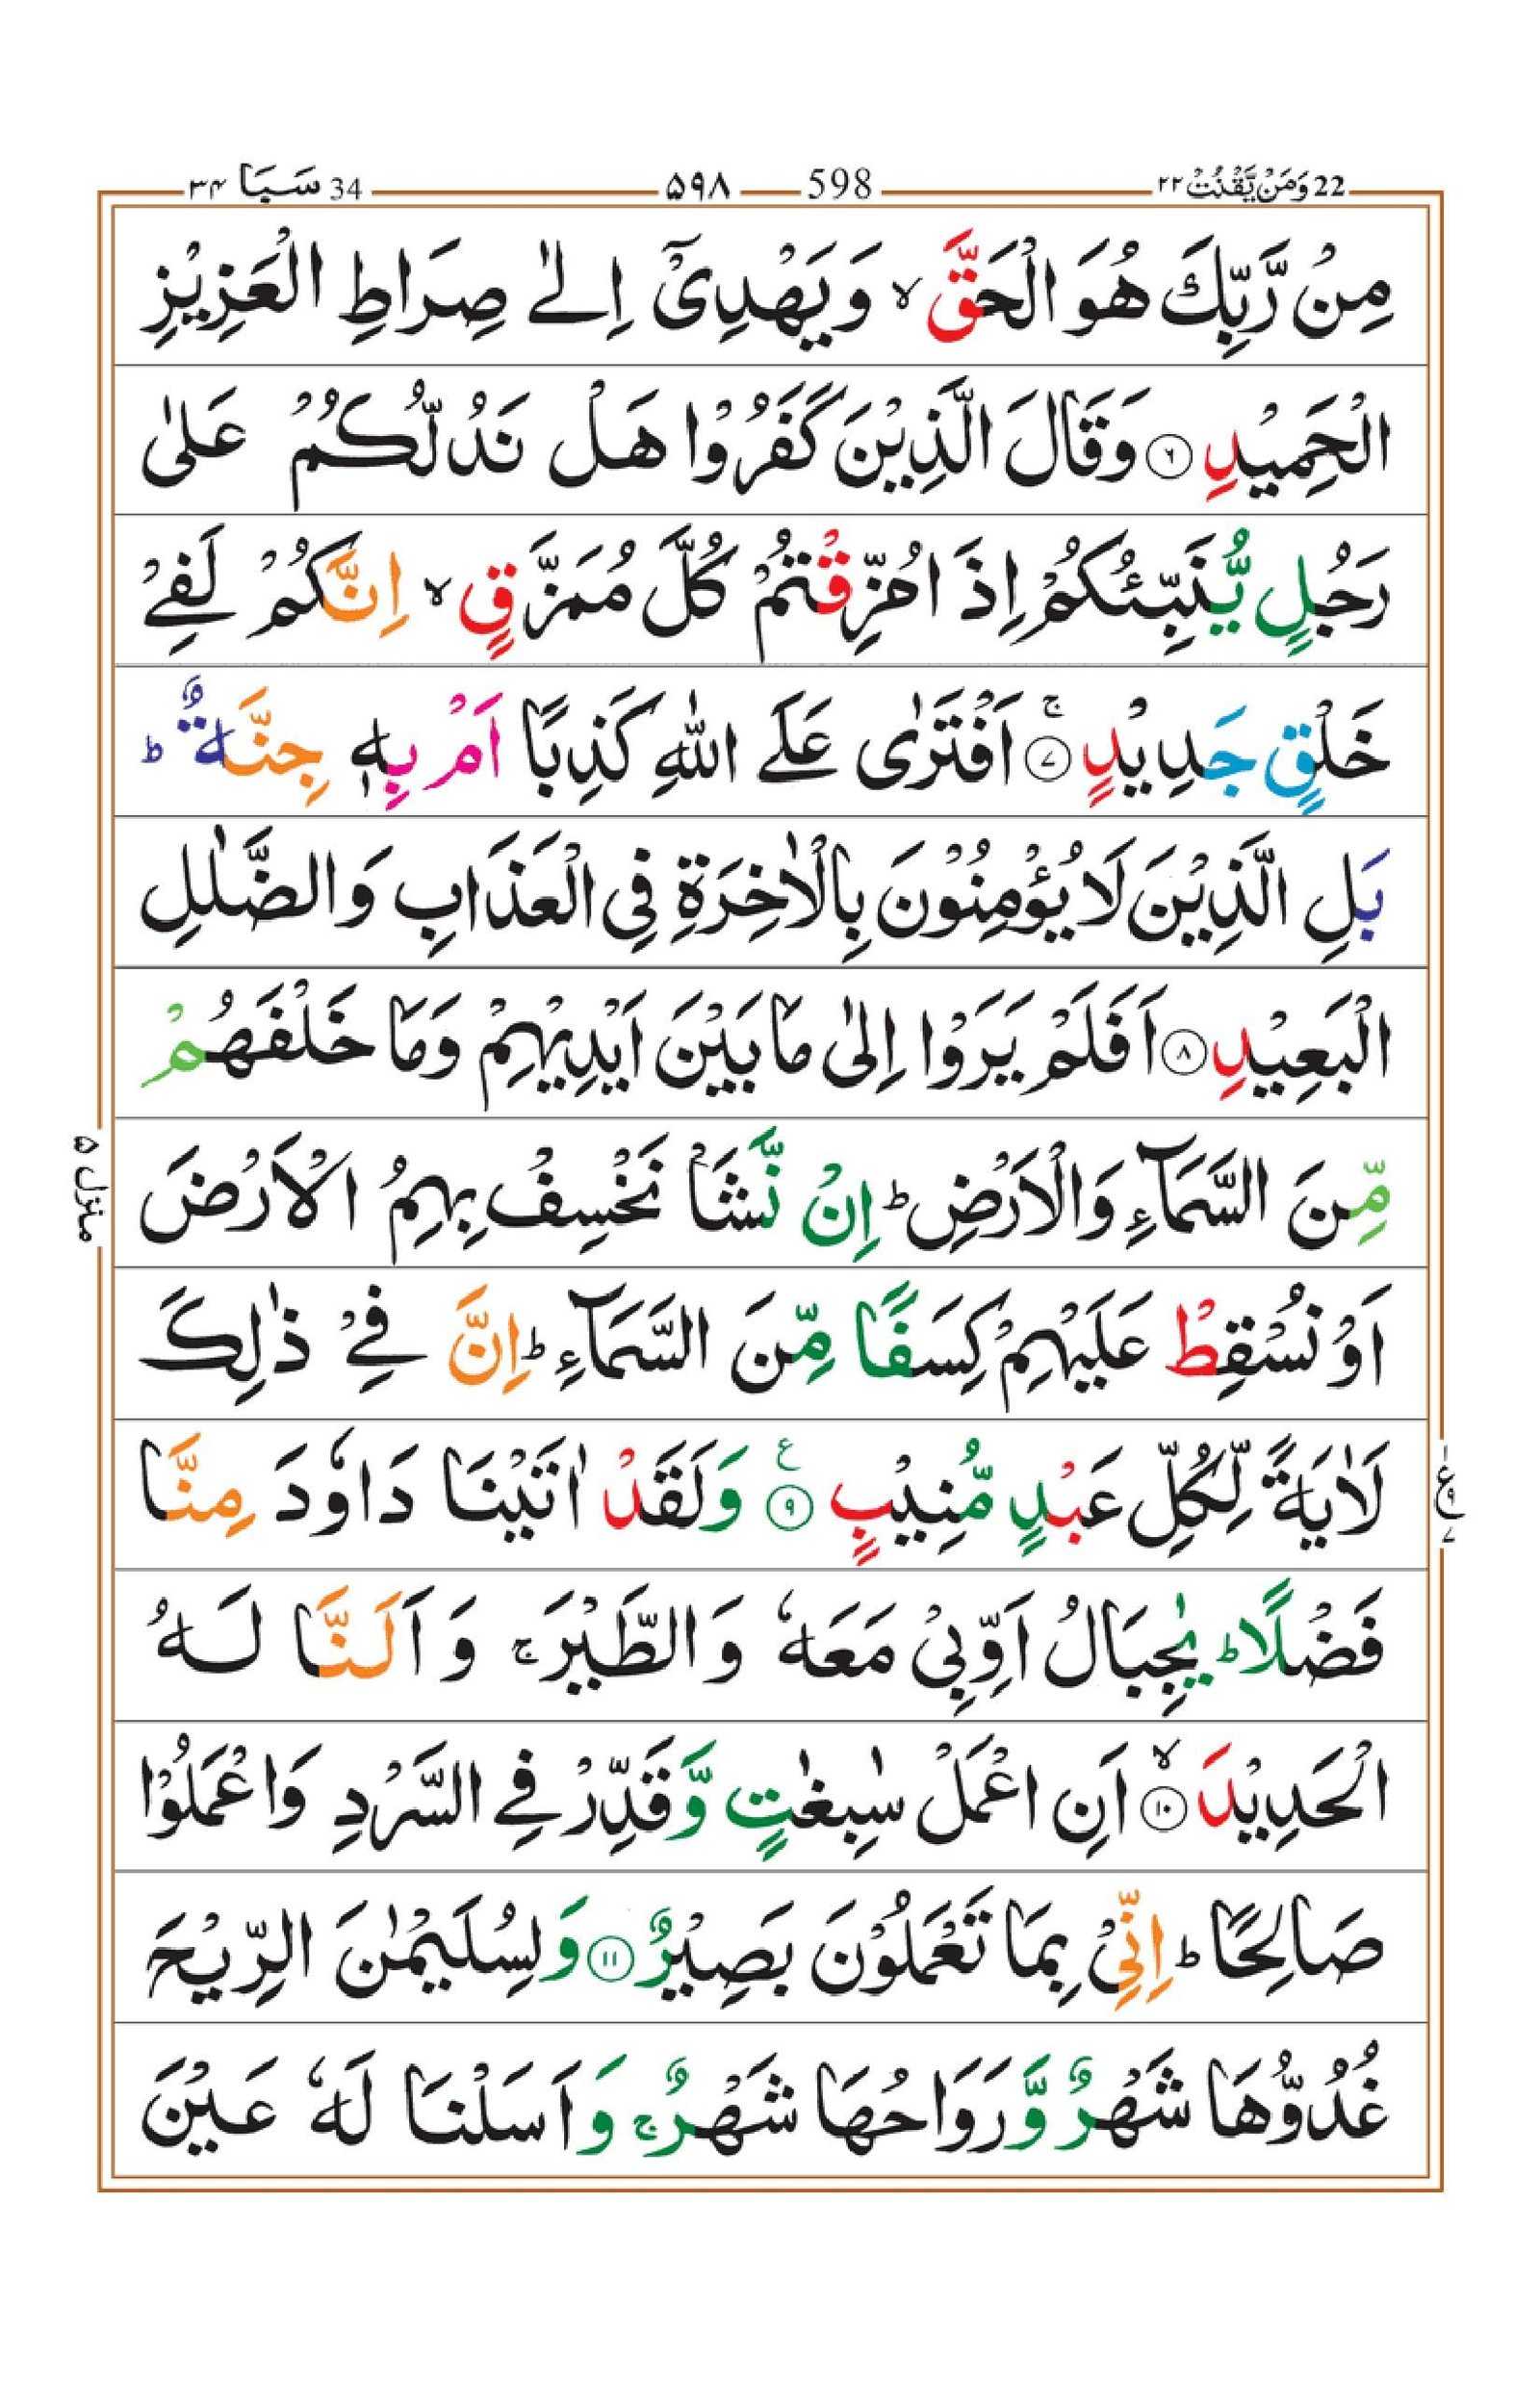 22 وَمَنْ يَّقْنُتْ ٢٢ 598 ۵۹۸ 34 سَبَا ۳۴
مِنْ رَّبِّكَ هُوَ الْحَقَّ ۙ وَيَهْدِىْۤ اِلٰى صِرَاطِ الْعَزِيْزِ
الْحَمِيْدِ ۝٦ وَقَالَ الَّذِيْنَ كَفَرُوْا هَلْ نَدُلُّكُمْ عَلٰى
رَجُلٍ يُّنَبِّئُكُمْ اِذَا مُزِّقْتُمْ كُلَّ مُمَزَّقٍ ۙ اِنَّكُمْ لَفِىْ
خَلْقٍ جَدِيْدٍ ۝٧ۚ اَفْتَرٰى عَلَى اللّٰهِ كَذِبًا اَمْ بِهٖ جِنَّةٌ ؕ
بَلِ الَّذِيْنَ لَا يُؤْمِنُوْنَ بِالْاٰخِرَةِ فِى الْعَذَابِ وَالضَّلٰلِ
الْبَعِيْدِ ۝٨ اَفَلَمْ يَرَوْا اِلٰى مَا بَيْنَ اَيْدِيْهِمْ وَمَا خَلْفَهُمْ
مِّنَ السَّمَآءِ وَالْاَرْضِ ؕ اِنْ نَّشَاْ نَخْسِفْ بِهِمُ الْاَرْضَ
اَوْ نُسْقِطْ عَلَيْهِمْ كِسَفًا مِّنَ السَّمَآءِ ؕ اِنَّ فِىْ ذٰلِكَ
لَاٰيَةً لِّكُلِّ عَبْدٍ مُّنِيْبٍ ۝٩ ع وَلَقَدْ اٰتَيْنَا دَاوٗدَ مِنَّا
فَضْلًا ؕ يٰجِبَالُ اَوِّبِىْ مَعَهٗ وَالطَّيْرَ ۚ وَاَلَنَّا لَهُ
الْحَدِيْدَ ۝١٠ۙ اَنِ اعْمَلْ سٰبِغٰتٍ وَّقَدِّرْ فِى السَّرْدِ وَاعْمَلُوْا
صَالِحًا ؕ اِنِّىْ بِمَا تَعْمَلُوْنَ بَصِيْرٌ ۝١١ وَلِسُلَيْمٰنَ الرِّيْحَ
غُدُوُّهَا شَهْرٌ وَّرَوَاحُهَا شَهْرٌ ۚ وَاَسَلْنَا لَهٗ عَيْنَ
منزل ۵
ع ٩ ٧